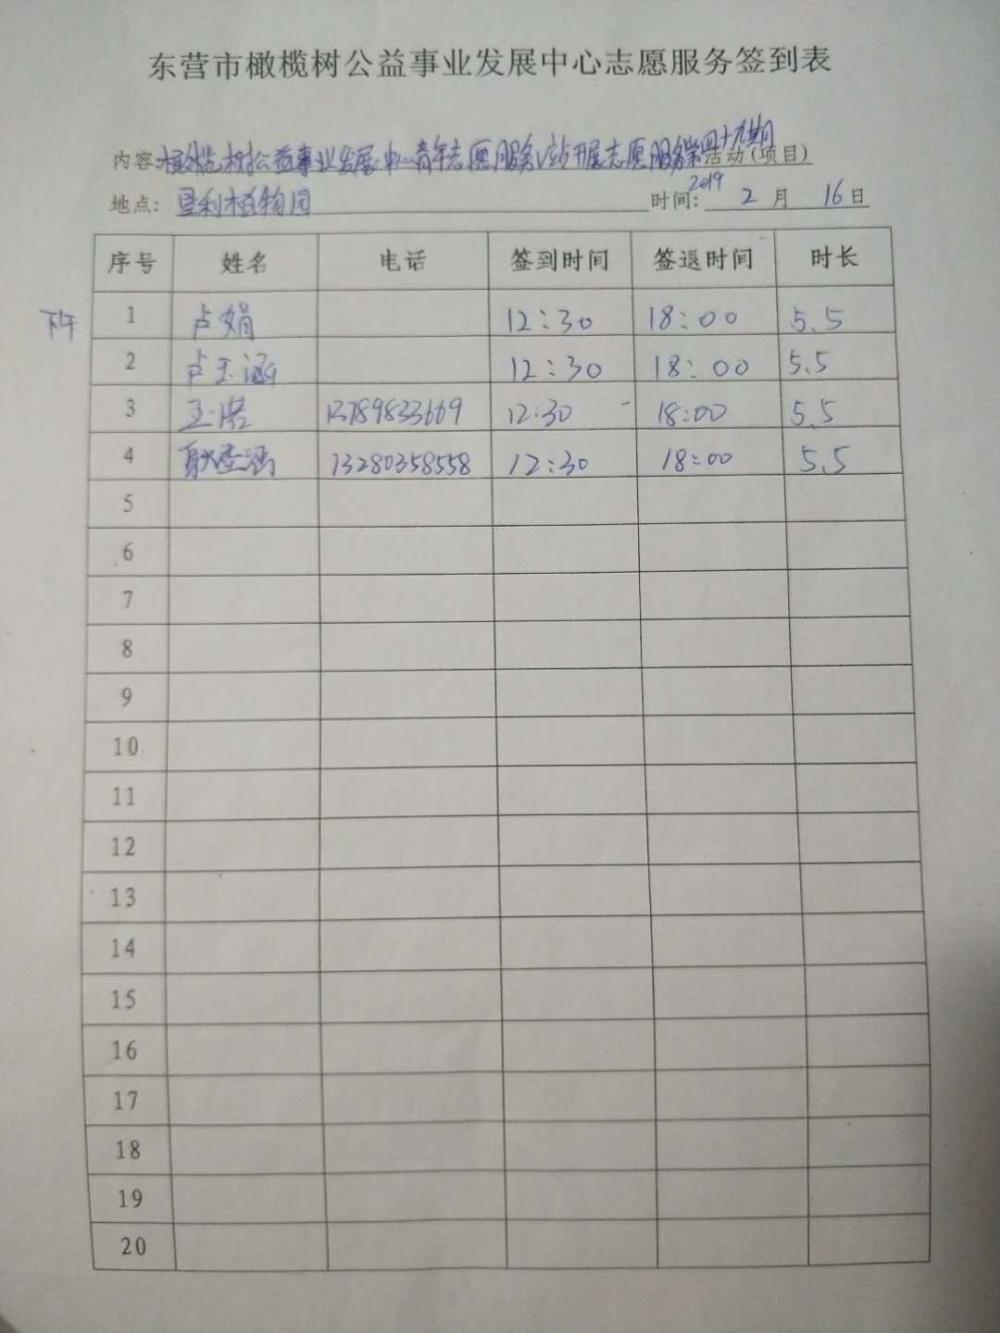 东营市橄榄树公益事业发展中心志愿服务签到表
内容:橄榄树公益事业发展中心青年志愿服务V站开展志愿服务第四十九期活动(项目)
地点: 垦利植物园 时间: 2019 2 月 16 日
序号 姓名 电话 签到时间 签退时间 时长
下午 1 卢娟 12:30 18:00 5.5
2 卢玉涵 12:30 18:00 5.5
3 13789833669 12:30 18:00 5.5
4 13280358558 12:30 18:00 5.5
5
6
7
8
9
10
11
12
13
14
15
16
17
18
19
20